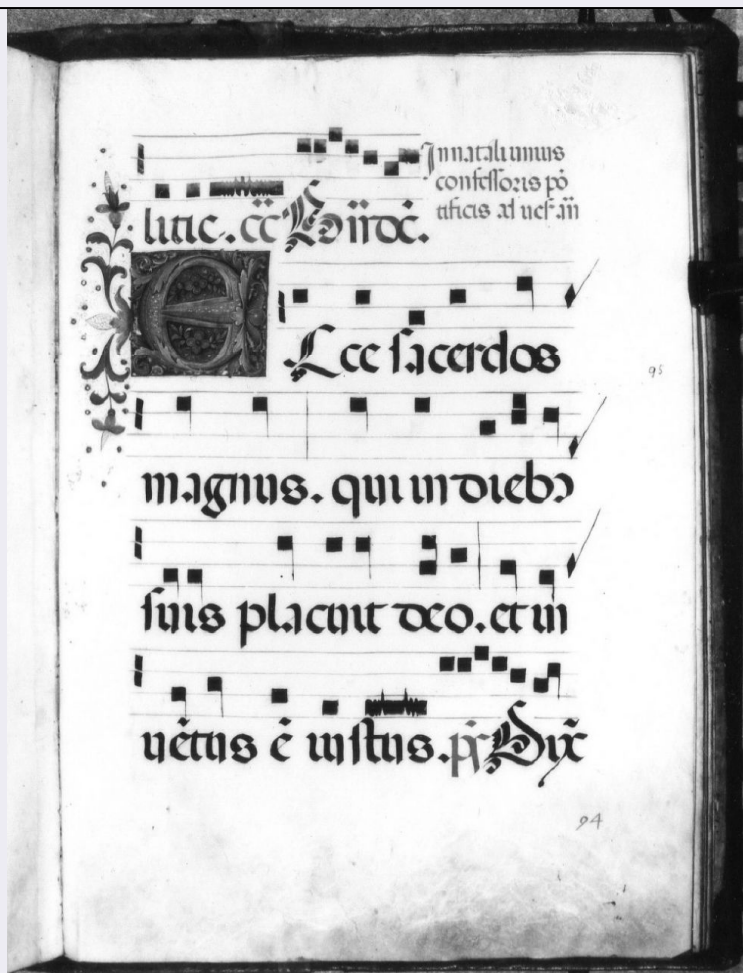 In natali unius
confessoris pō
tificis ad uesᵽ. añ
litie. cc̄ Bñdc̄.
Ecce sacerdos
95
magnus. qui in diebꝰ
suis placuit deo. et in
uētus ē iustus. ps̄ Dix̄
94